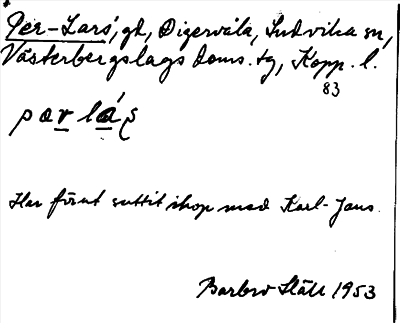 Per-Lars, gd, Digervåla, Ludvika sn,
Västerbergslags doms. tg, Kopp. l.
83
pærlás
Har förut suttit ihop med Karl-Jans.
Barbro Ståhl 1953